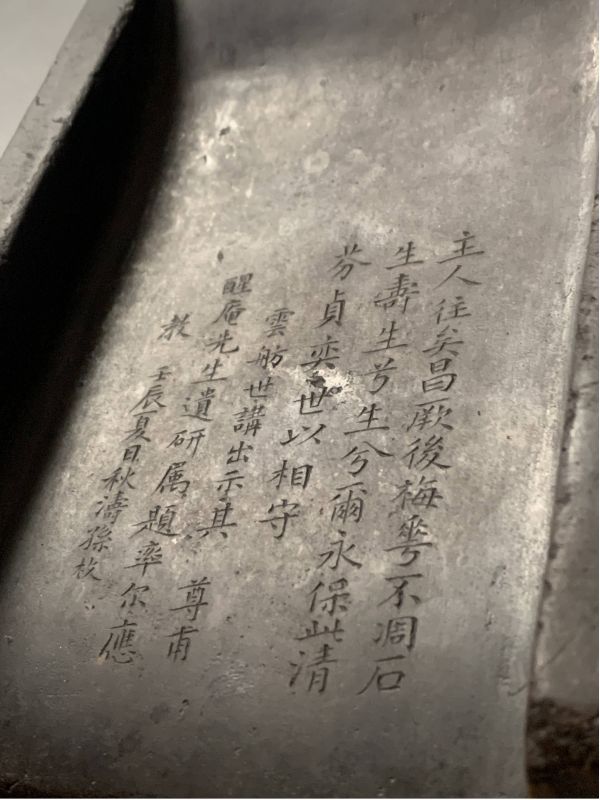 主人往矣昌厥後梅華不凋石
生壽生兮生兮爾永保此清
芬貞奕世以相守
雲舫世講出示其尊甫
醒庵先生遺研属題率尔應
教
壬辰夏日秋濤孫枚